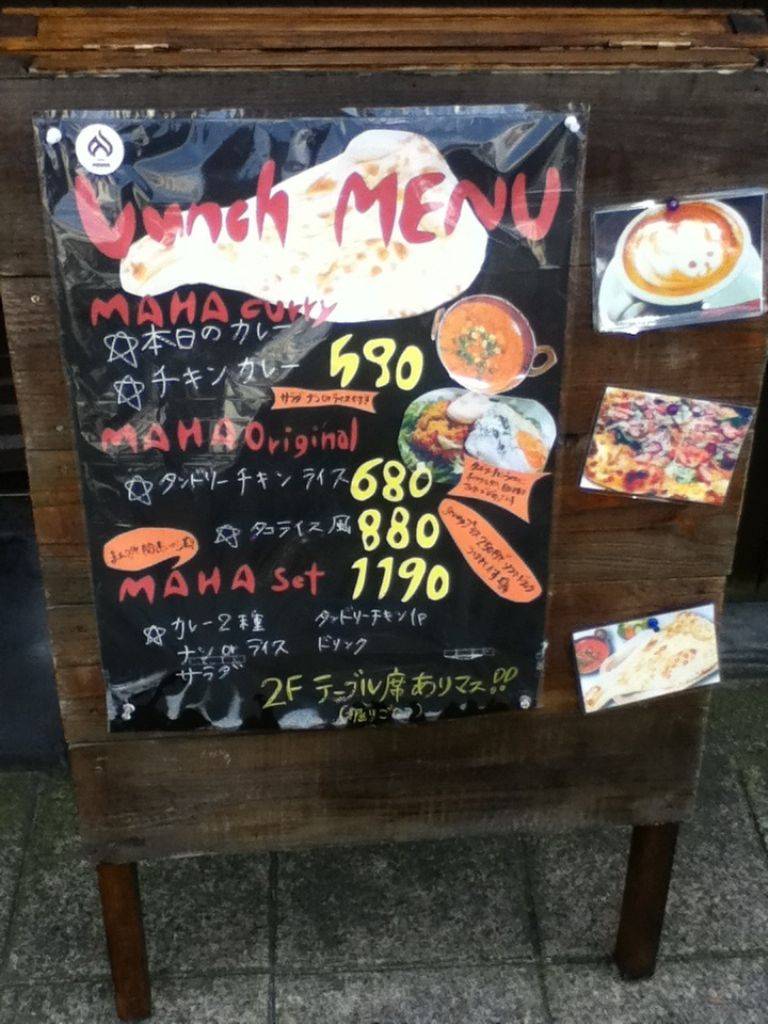 Lunch MENU
MAHA curry
☆本日のカレー
☆チキンカレー 590
MAHA Original
☆タンドリーチキンライス 680
☆タコライス風 880
MAHA set 1190
☆カレー2種 タンドリーチキン1P
ナンorライス ドリンク
サラダ
2F テーブル席ありマス!!
(掘りごたつ)